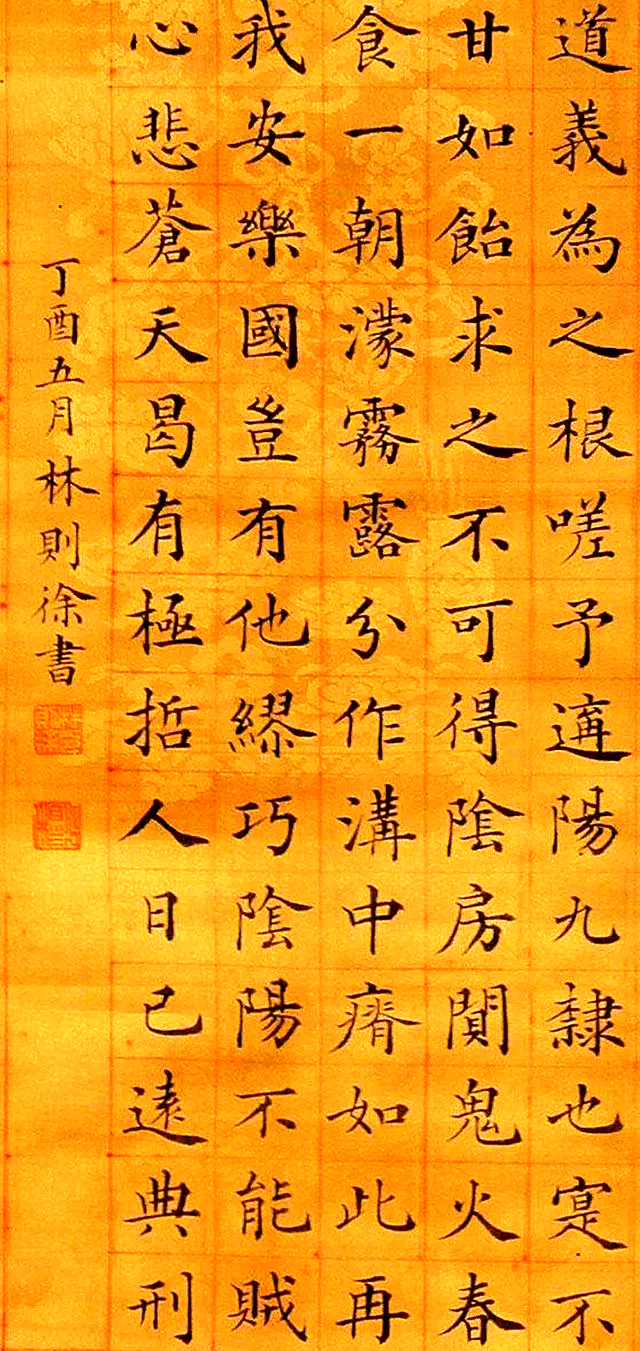 道義為之根嗟予遘陽九隸也寔不
甘如飴求之不可得陰房闃鬼火春
食一朝濛霧露分作溝中瘠如此再
我安樂國豈有他繆巧陰陽不能賊
心悲蒼天曷有極哲人日已遠典刑
丁酉五月林則徐書